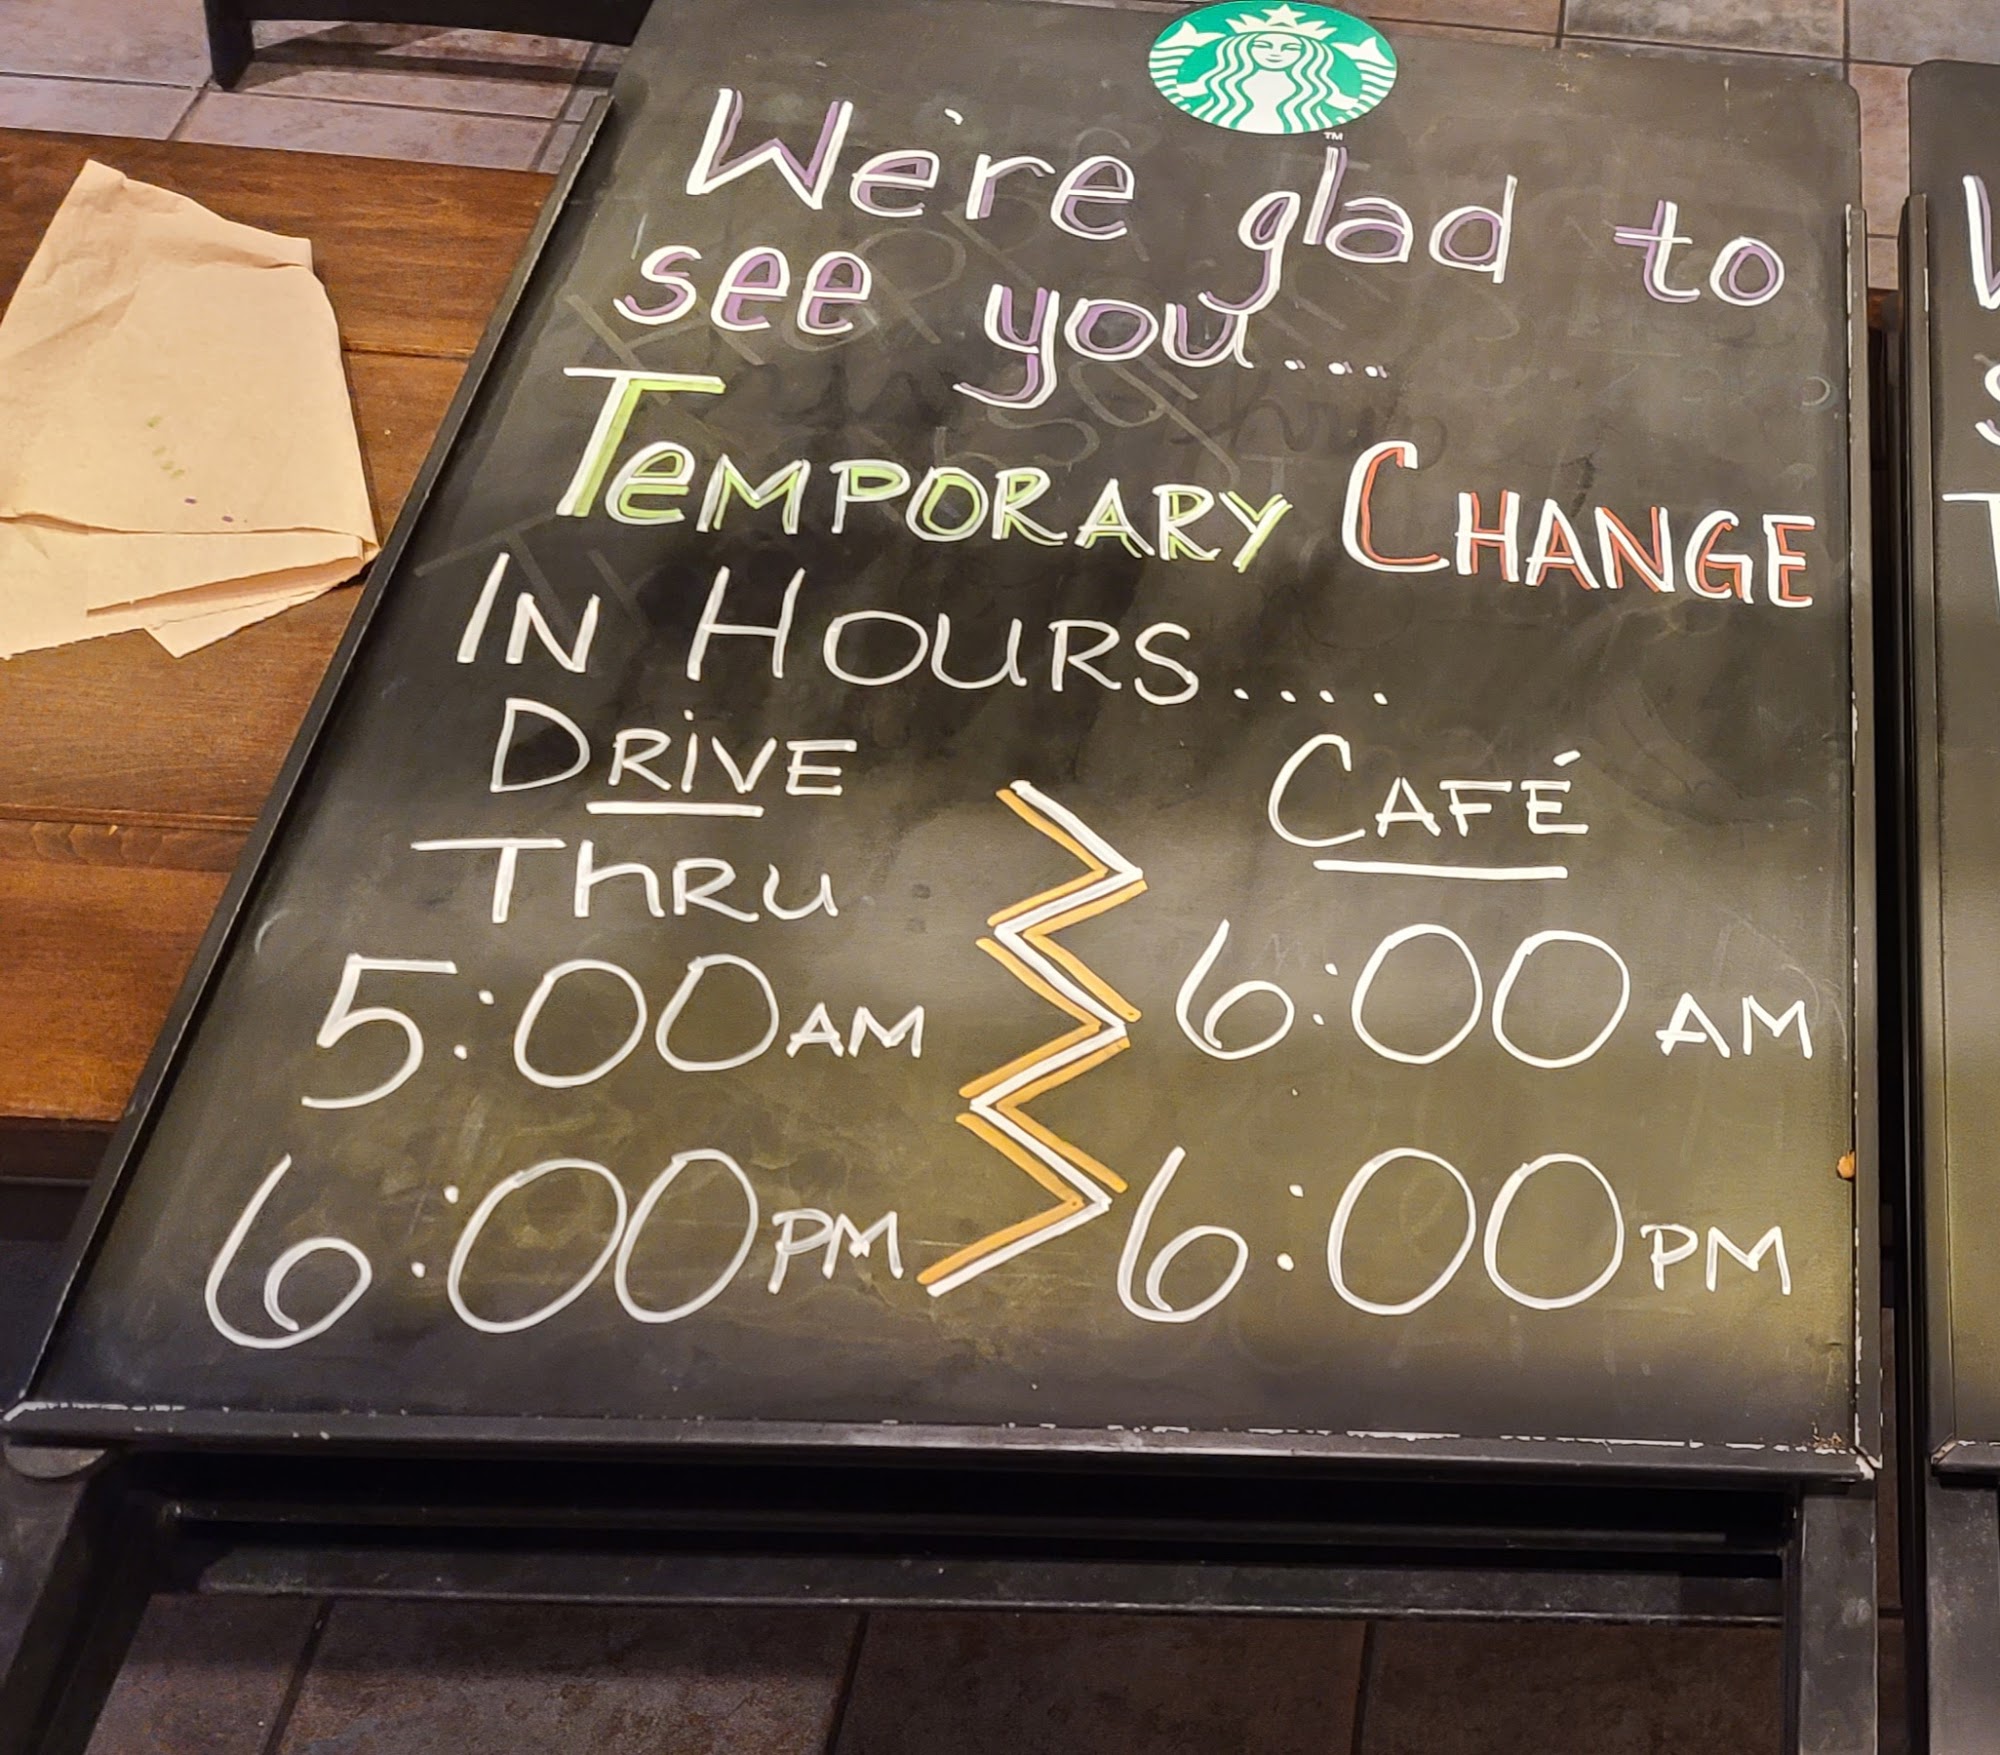 We're glad to
see you....
TEMPORARY CHANGE
IN HOURS....
DRIVE
THRU
5:00 AM
6:00 PM
CAFÉ
6:00 AM
6:00 PM
TM